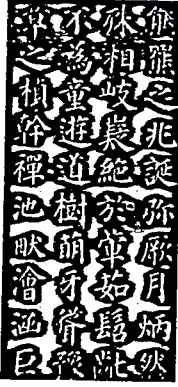 熊羆之兆誕弥厥月炳然
殊相岐嶷絶於葷茹髫齔
不為童遊道樹萌牙聳豫
章之楨幹禪池畎澮涵巨